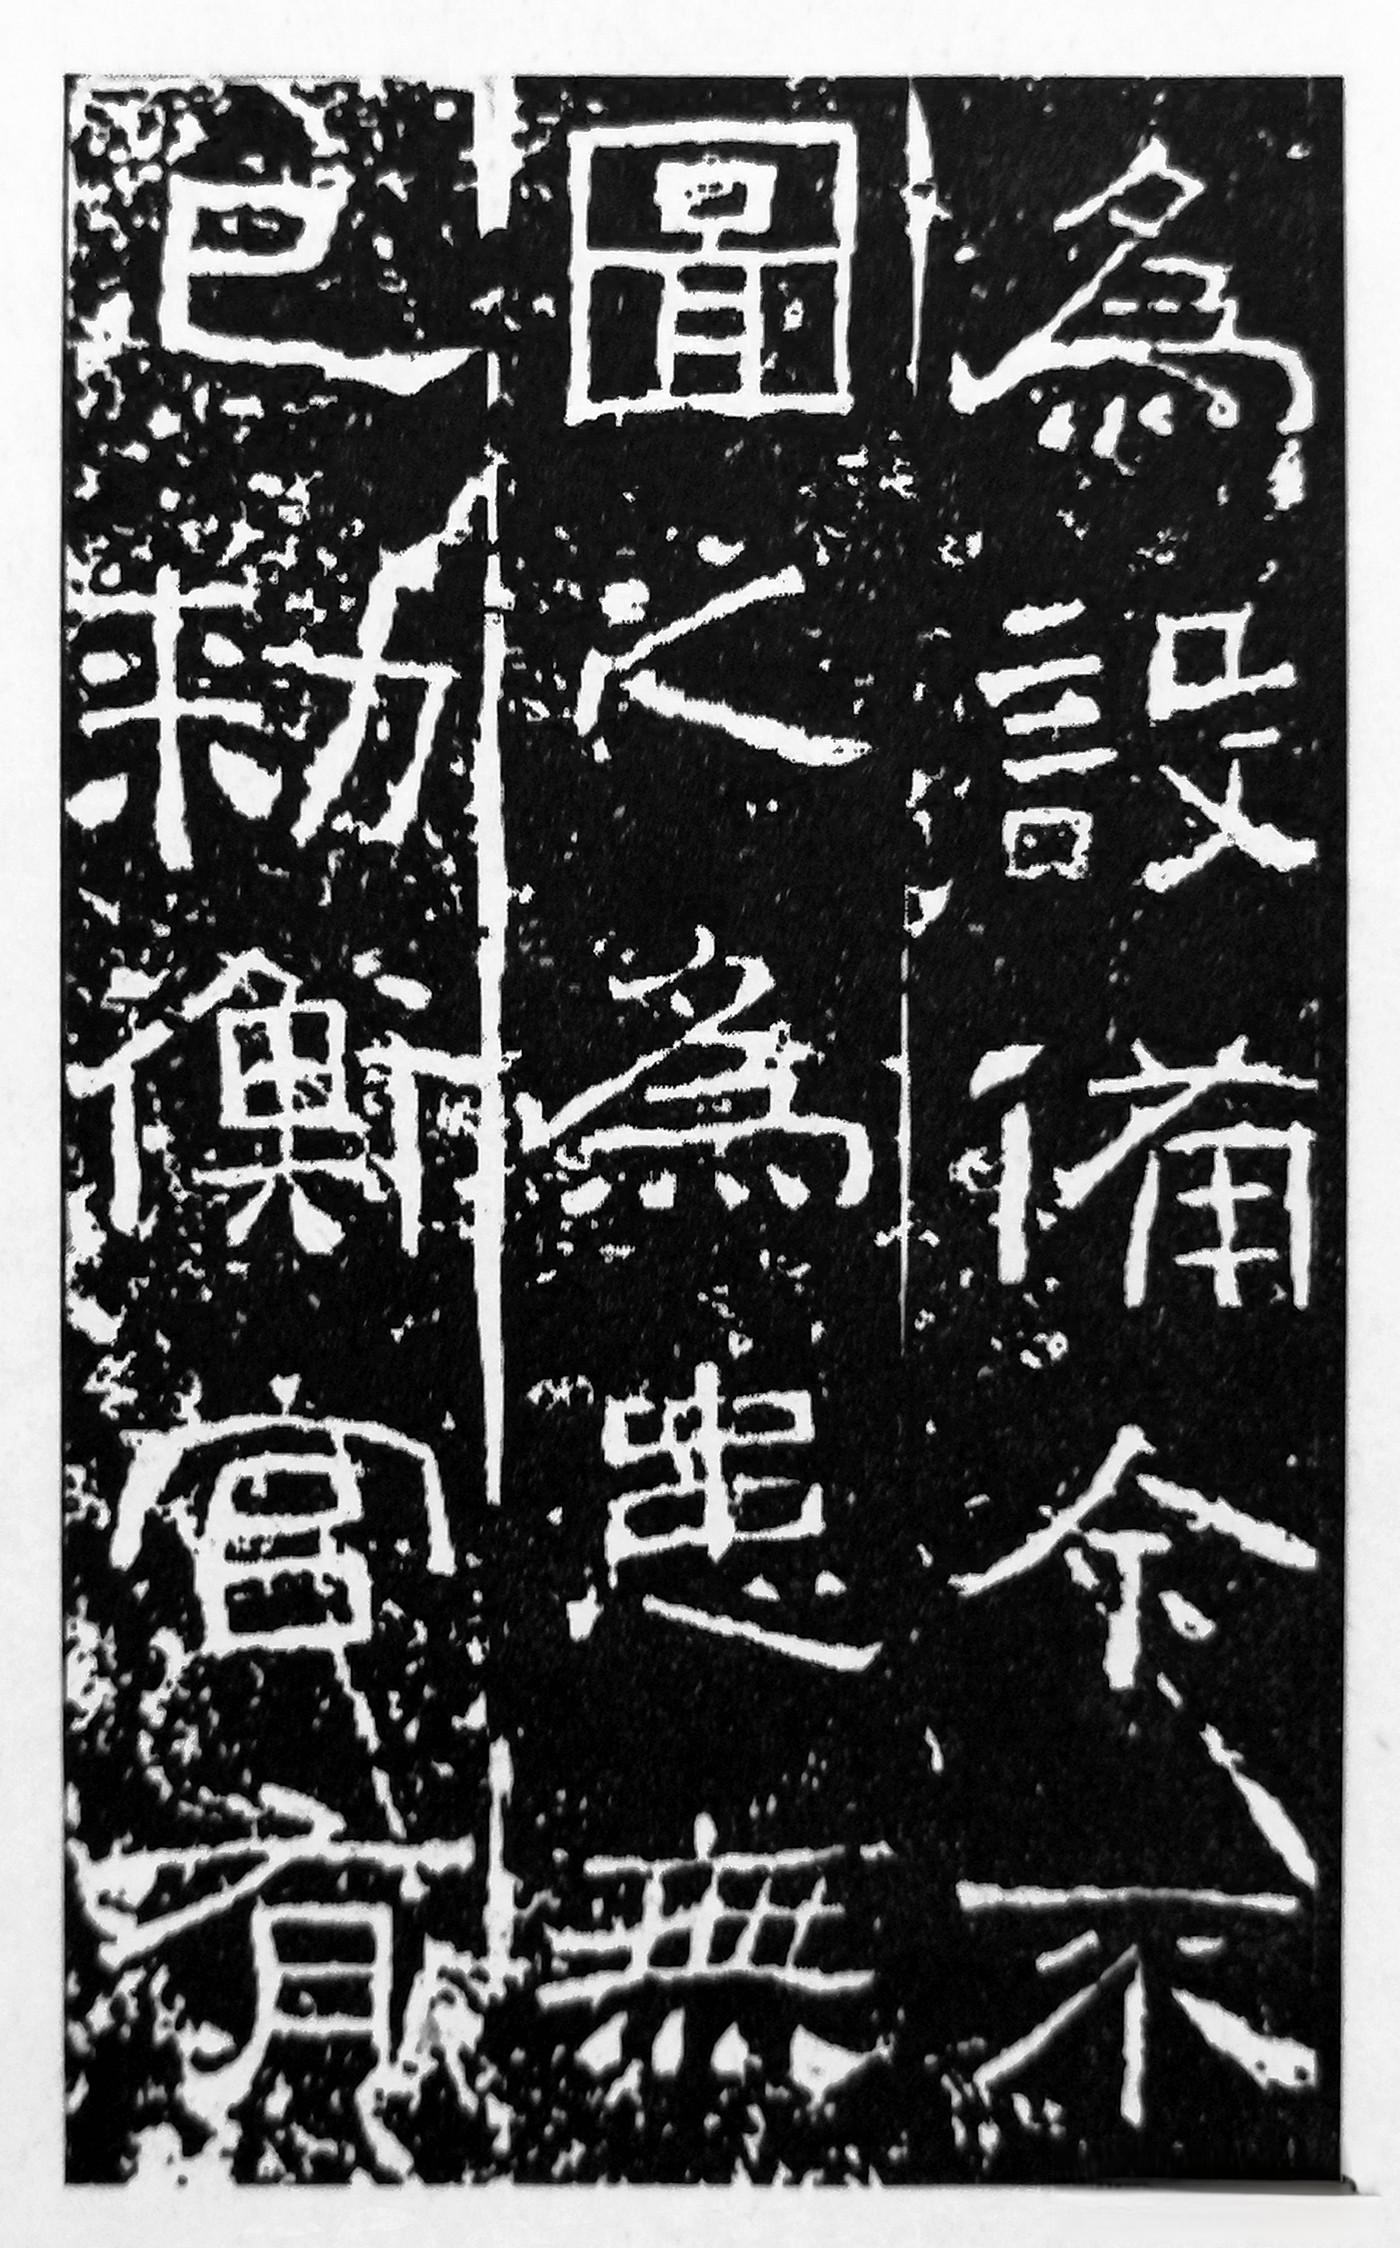 爲設備今不
圖之爲患無
已勑衡官有